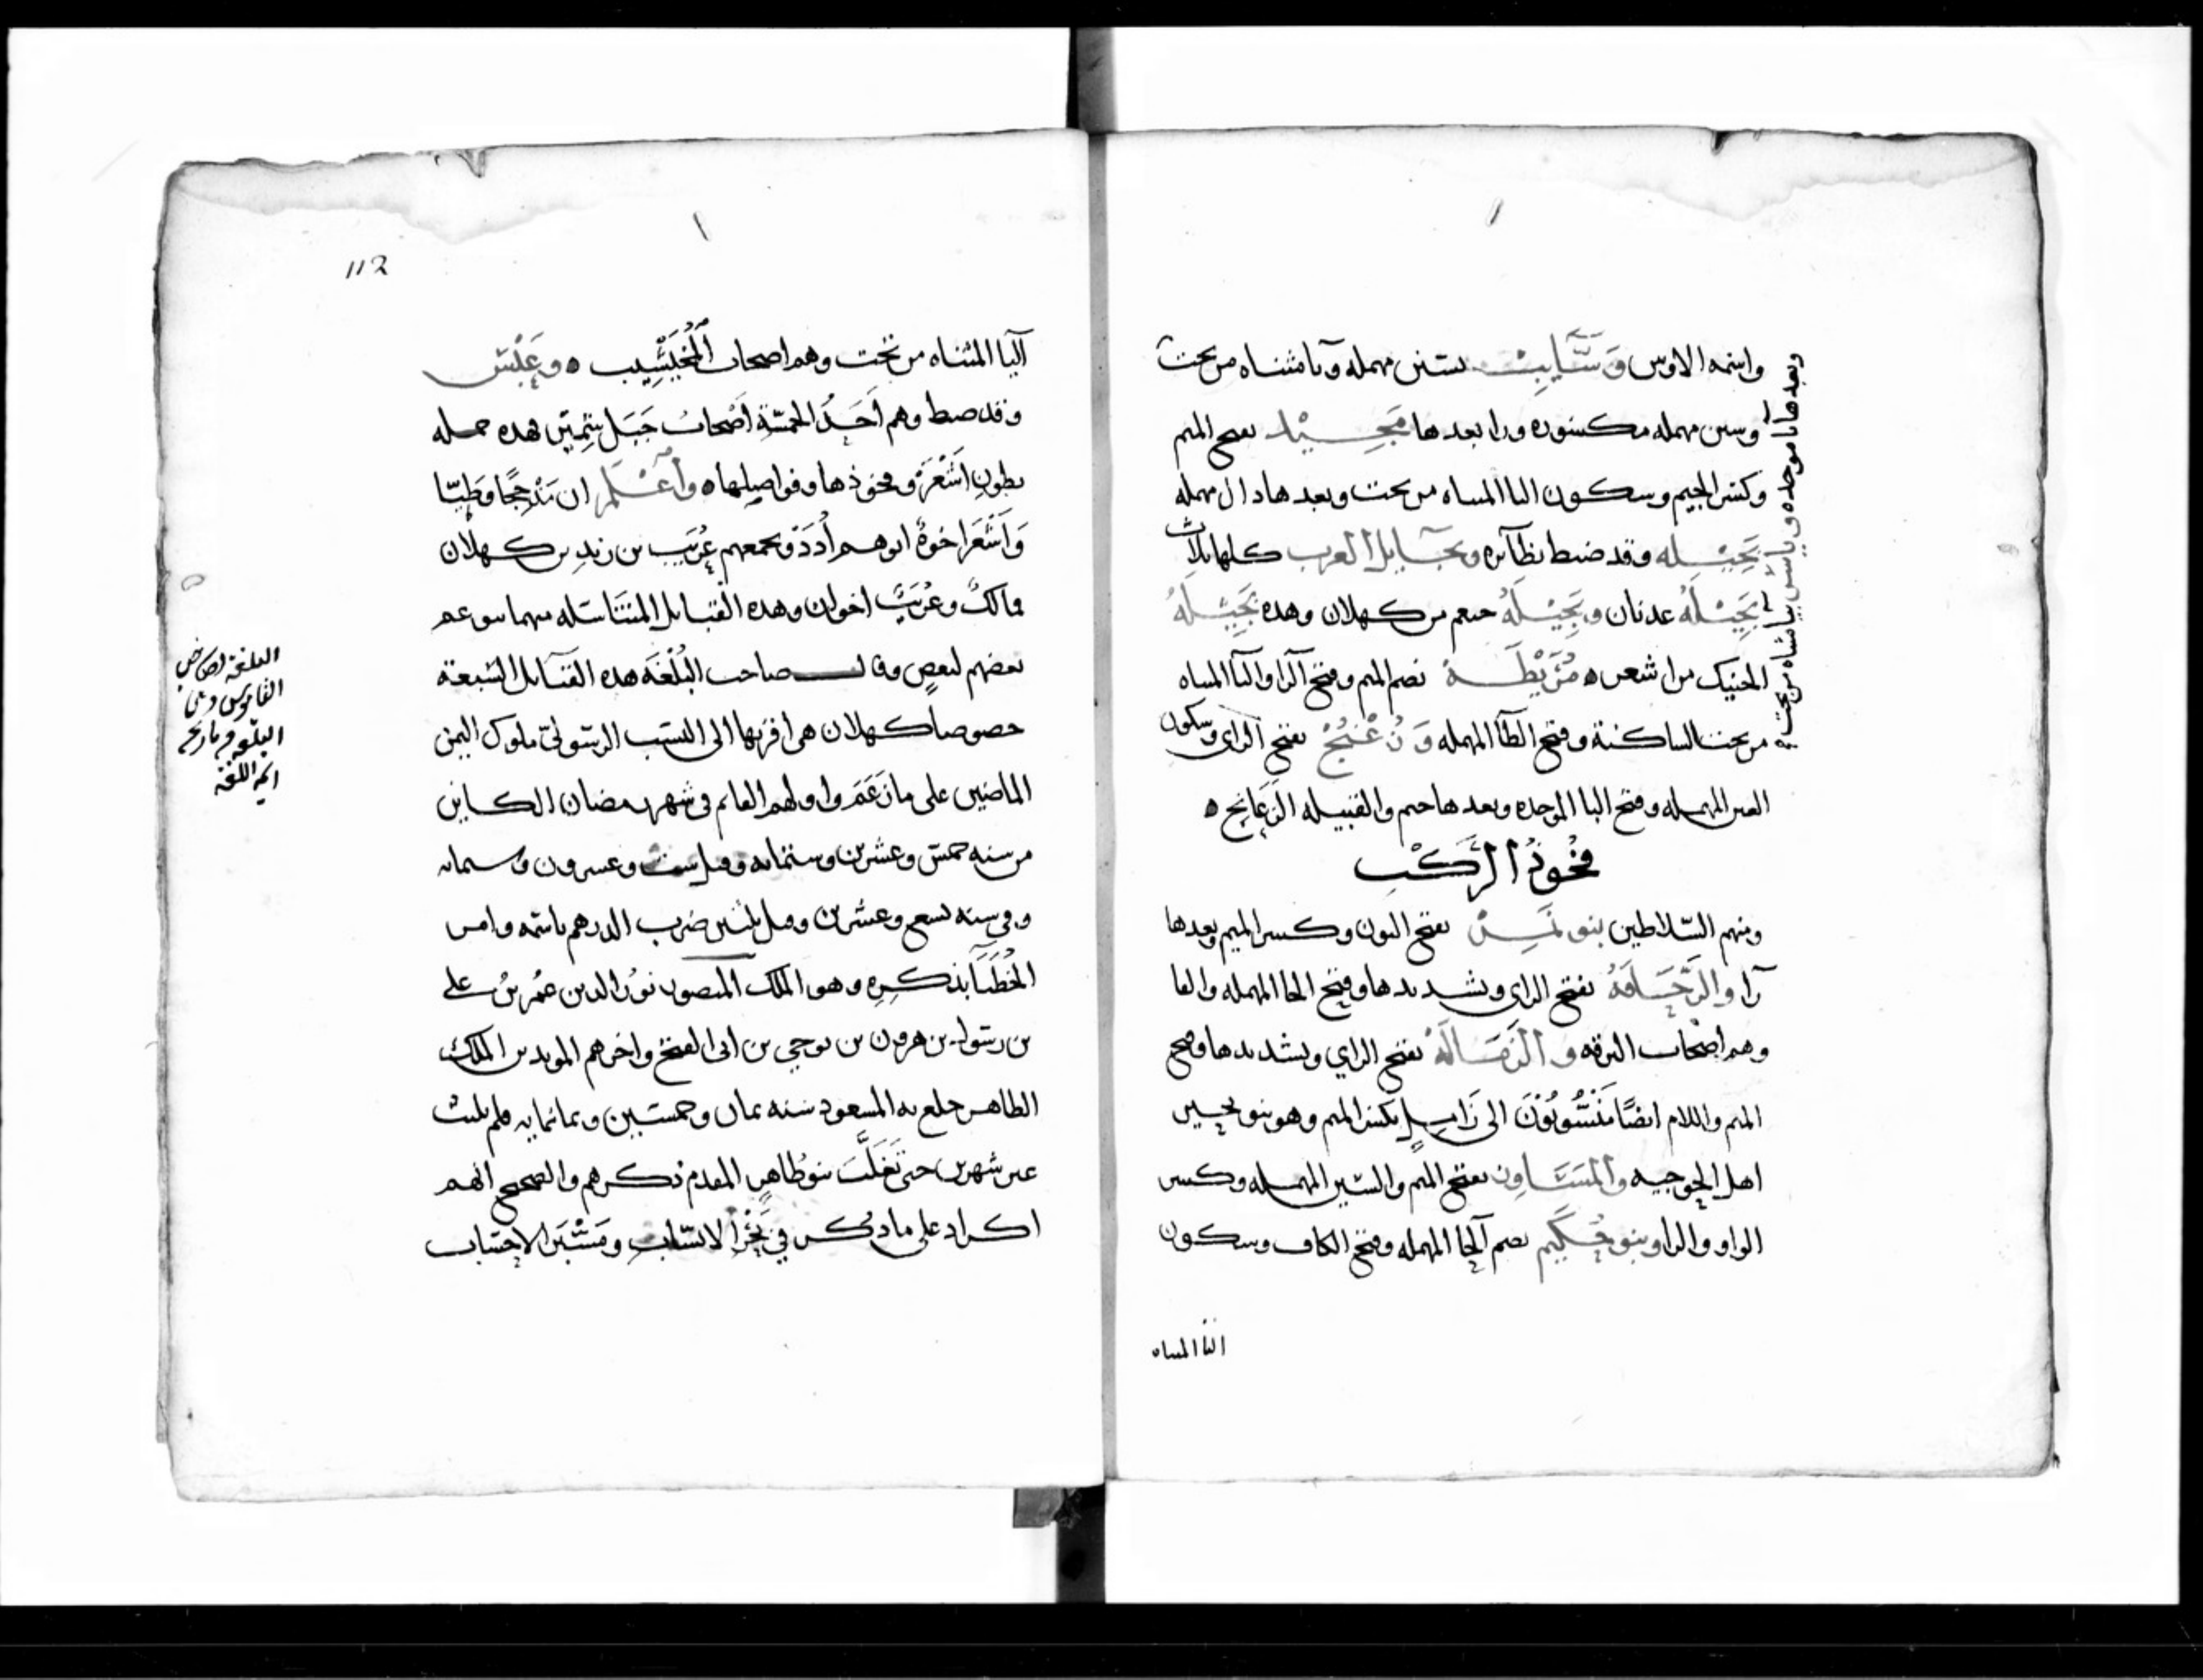 واسمه الاوس وسَّايب بسين مهمله وآيا مثناه من تحت
وسين مهمله مكسوره ورا بعدها مَجِيْد بفتح الميم
وكسر الجيم وسكون اليا المثناه من تحت وبعدها دال مهمله
بَجِيْله وقد ضبط نظآئره وبجآيل العرب كلها ثلاث
بَجِيْلَهُ عدنان وبَجِيْلَهُ خثعم من كهلان وهذه بَجِيْلَهُ
الحنيك من اشعر ه مُرَيْطَه بضم الميم وفتح الرا واليا المثناه
من تحت الساكنة وفتح الطآ المهمله وَزُعْبُجْ بفتح الزاى وسكون
العين المهمله وفتح البا الموحده وبعدها جيم والقبيله الزَعَابِج ه
وبعدها با موحده
مثناه من تحت
فُخُوذُ الرَّكْب
ومنهم السّلاطين بنو نَمِرْ بفتح النون وكسر الميم وبعدها
رآ والزَّحَافَهُ بفتح الزاى وتشديدها وفتح الحا المهمله والفا
وهم اصْحاب البرقه و الزَمَالَهُ بفتح الزاي وتشديدها وفتح
الميم واللام ايضًا مَنْسُوبُوْنَ الى زَامِلٍ بكسر الميم وهو بنو يحيى
اهل الجوجيه والمَسَاوِر بفتح الميم والسّين المهمله وكسر
الواو والرا وبنو حُكَيم بضم آلحا المهمله وفتح الكاف وسكون
اليا المثناه
112
آليا المثناه من تحت وهم اصحاب المُخَيْشِيب ه وعَبْس
وقد ضبط وهم اَحَدُ الخمسَةِ اَصْحابُ جَبَل هذه جمله
بطونِ اَشْعَرَ وفخوذها وفواصيلها ه وآعْلَم ان مَذْحِجًا وطَيّا
وَاَشْعَر اخوةٌ ابوهم اُدَدَ ويجمعهم عُرَيب بن زيدِ بن كهلان
فمالكٌ وعُرَيبٌ اخوان وهذه القبايل المتناسله منهما بنو عم
بعضهم لبعضٍ وقال صاحب البُلْغَه هذه القبآيل السّبعة
خصوصا كهلان هى اقربها الى النسَب الرسّولىّ ملوك اليمن
الماضين على ما زَعَمَ واولهم القايم فى شهر رمضان الكاين
من سنه خمس وعشرين وستمايه وقيل ست وعشرون وستمايه
وفى سنه تسع وعشرين وقيل ثلثين ضرب الدرهم باسمه وامر
الخُطَبَآ بذكرِه وهو الملك المنصور نورُ الدين عمُر بنُ على
بن رسَول بن هرون بن يوحى بن ابى الفتح واخرهم المويد بن الملك
الطاهر خلع به المسعود سَنه ثمان وخمسَين وثمانمايه فلم يلبث
غير شهرين حتى تَغلَّبَ بنو طاهرٍ المقدم ذكرهم والصحيح انهم
اكراد على ما ذُكر في بَحْر الانسَاب ومَشَبّر الاحسَاب
البلغة لصاحب
القاموس وهى
البلغه فى تاريخ
ايمه اللغة